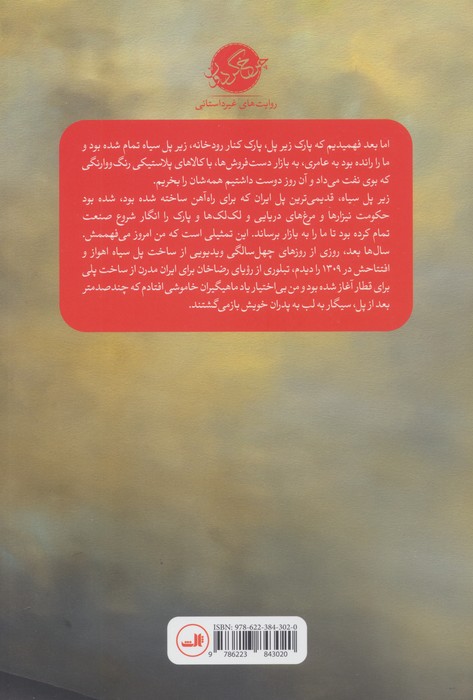 چرخ‌گردون
روایت‌های غیرداستانی
اما بعد فهمیدیم که پارک زیر پل، پارک کنار رودخانه، زیر پل سیاه تمام شده بود و
ما را رانده بود به عامری، به بازار دست‌فروش‌ها، با کالاهای پلاستیکی رنگ‌ووارنگی
که بوی نفت می‌داد و آن روز دوست داشتیم همه‌شان را بخریم.
زیر پل سیاه، قدیمی‌ترین پل ایران که برای راه‌آهن ساخته شده بود، شده بود
حکومت نیزارها و مرغ‌های دریایی و لک‌لک‌ها و پارک را انگار شروع صنعت
تمام کرده بود تا ما را به بازار برساند. این تمثیلی است که من امروز می‌فهممش.
سال‌ها بعد، روزی از روزهای چهل‌سالگی ویدیویی از ساخت پل سیاه اهواز و
افتتاحش در ۱۳۰۹ را دیدم، تبلوری از رؤیای رضاخان برای ایران مدرن از ساخت پلی
برای قطار آغاز شده بود و من بی‌اختیار یاد ماهیگیران خاموشی افتادم که چندصدمتر
بعد از پل، سیگار به لب به پدران خویش بازمی‌گشتند.
ISBN: 978-622-384-302-0
9 786223 843020
ثالث